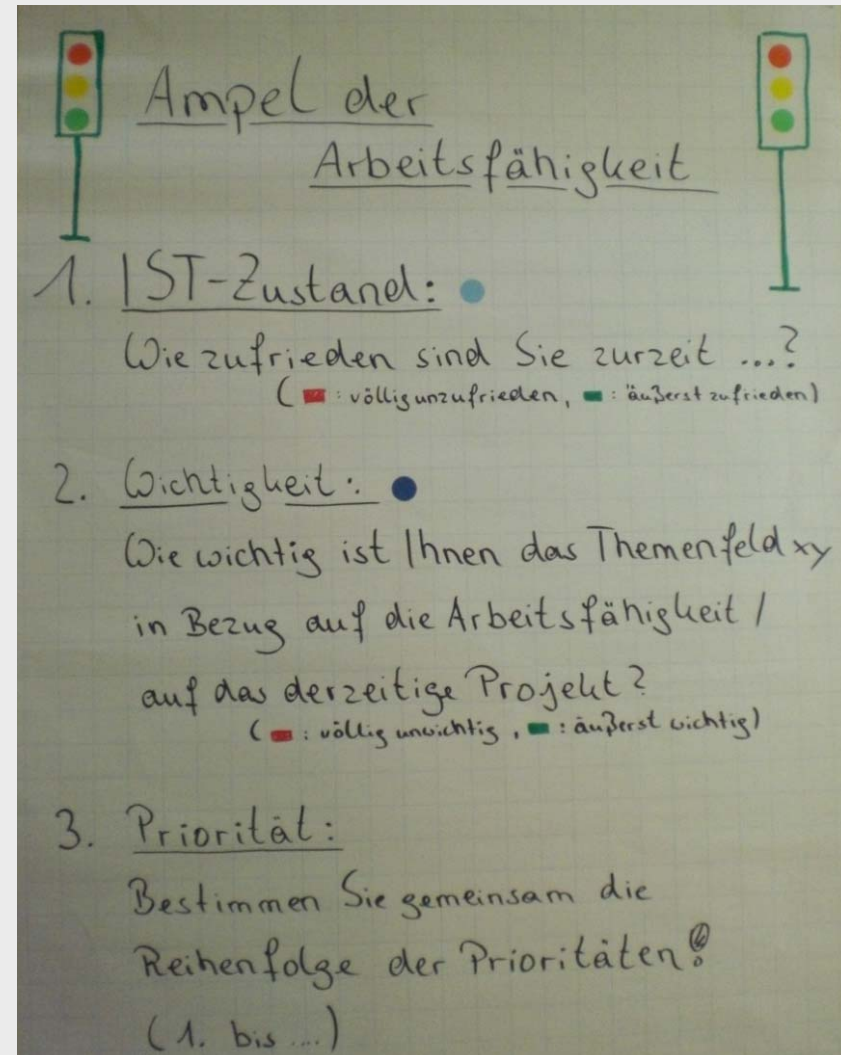 Ampel der
Arbeitsfähigkeit
1. IST-Zustand:
Wie zufrieden sind Sie zurzeit ...?
( : völlig unzufrieden, : äußerst zufrieden)
2. Wichtigkeit:
Wie wichtig ist Ihnen das Themenfeld xy
in Bezug auf die Arbeitsfähigkeit /
auf das derzeitige Projekt?
( : völlig unwichtig, : äußerst wichtig)
3. Priorität:
Bestimmen Sie gemeinsam die
Reihenfolge der Prioritäten!
(1. bis ...)